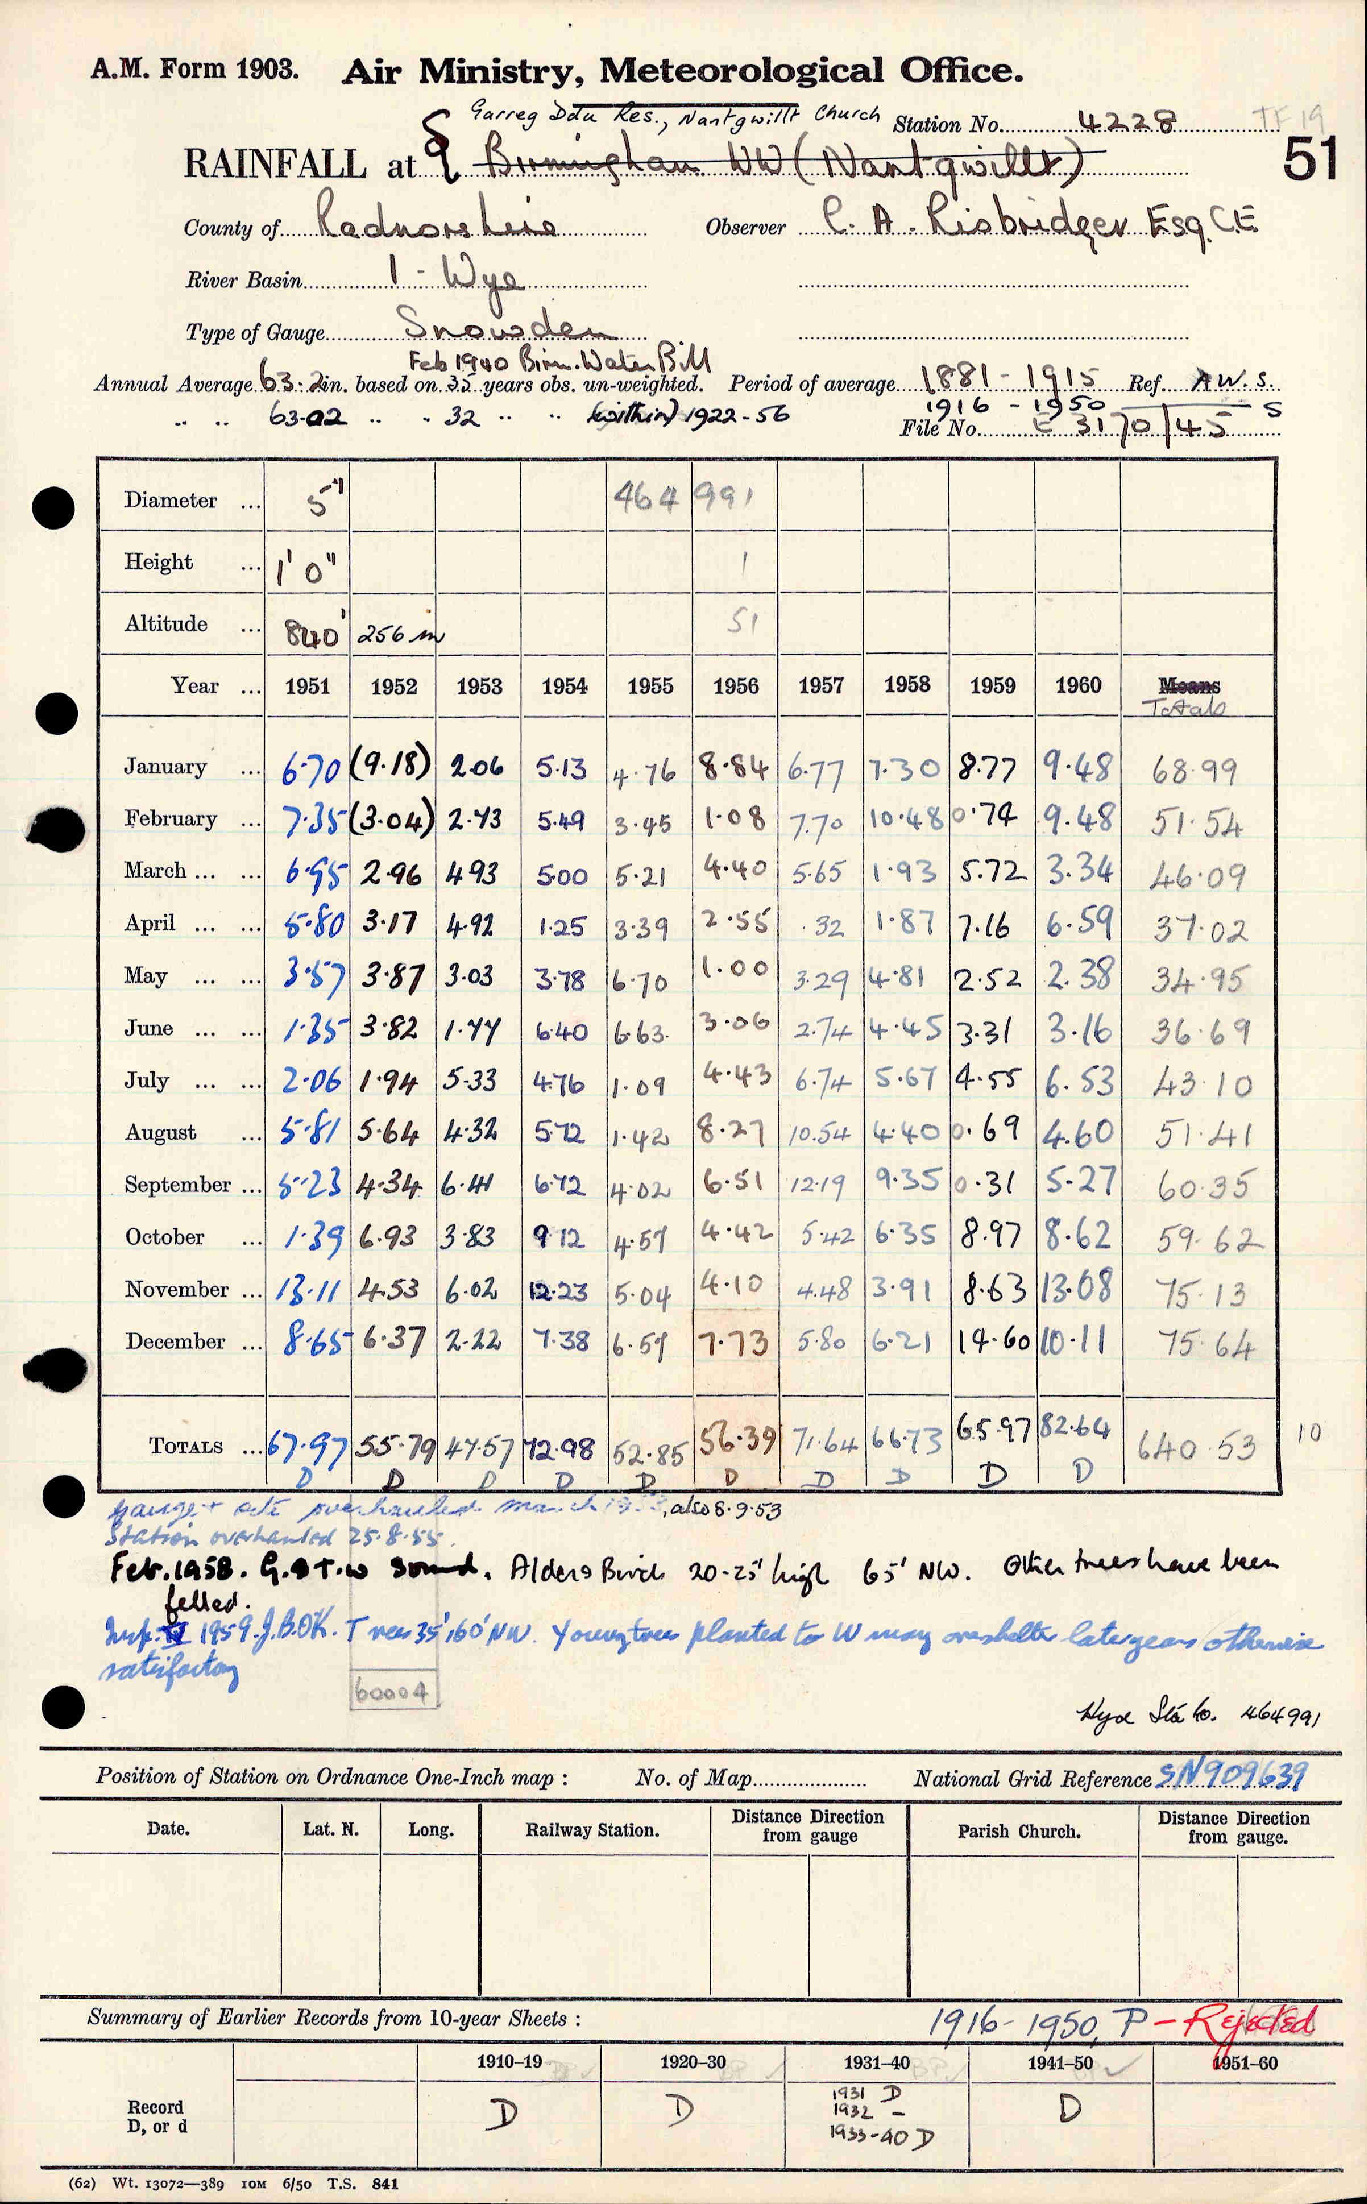 A.M. Form 1903. Air Ministry, Meteorological Office.
Garreg Ddu Res., Nantgwillt Church Station No. 4228 TF 19
RAINFALL at Birmingham WW (Nantgwillt) 51
County of Radnorshire Observer C. A. Risbridger Esq. C.E
River Basin 1 - Wye
Type of Gauge Snowden
Feb 1940 Birm. Water Bill
Annual Average 63.2 in. based on 35 years obs. un-weighted. Period of average 1881 - 1915 Ref. A.W.S.
1916 - 1950 S
" " 63.02 " " 32 " " (within) 1922-56 File No. E 3170/45
Diameter ... 5" 464 991
Height ... 1' 0" 1
Altitude ... 840' 256 m 51
Year ... 1951 1952 1953 1954 1955 1956 1957 1958 1959 1960 Means
Totals
January ... 6.70 (9.18) 2.06 5.13 4.76 8.84 6.77 7.30 8.77 9.48 68.99
February ... 7.35 (3.04) 2.73 5.49 3.45 1.08 7.70 10.48 0.74 9.48 51.54
March ... ... 6.95 2.96 4.93 5.00 5.21 4.40 5.65 1.93 5.72 3.34 46.09
April ... ... 5.80 3.17 4.92 1.25 3.39 2.55 .32 1.87 7.16 6.59 37.02
May ... ... 3.57 3.87 3.03 3.78 6.70 1.00 3.29 4.81 2.52 2.38 34.95
June ... ... 1.35 3.82 1.77 6.40 6.63 3.06 2.74 4.45 3.31 3.16 36.69
July ... ... 2.06 1.94 5.33 4.76 1.09 4.43 6.74 5.67 4.55 6.53 43.10
August ... 5.81 5.64 4.32 5.72 1.42 8.27 10.54 4.40 0.69 4.60 51.41
September ... 5.23 4.34 6.41 6.72 4.02 6.51 12.19 9.35 0.31 5.27 60.35
October ... 1.39 6.93 3.83 9.12 4.57 4.42 5.42 6.35 8.97 8.62 59.62
November ... 13.11 4.53 6.02 12.23 5.04 4.10 4.48 3.91 8.63 13.08 75.13
December ... 8.65 6.37 2.22 7.38 6.57 7.73 5.80 6.21 14.60 10.11 75.64
Totals ... 67.97 55.79 47.57 72.98 52.85 56.39 71.64 66.73 65.97 82.64 640.53 10
D D D D D D D D D D
Gauge + site overhauled march , also 8.9.53
Station overhauled 25.8.55.
Feb. 1958. G. & T.W Sound. Alders Birch 20-25' high 65' NW. Other trees have been
felled.
Insp. IV 1959. J.B. OK. Trees 35' 160' NW. Young trees planted to W may overshelter later years otherwise
satisfactory
60004
Hyd Sta No. 464991
Position of Station on Ordnance One-Inch map : No. of Map National Grid Reference SN909639
Date. Lat. N. Long. Railway Station. Distance Direction from gauge Parish Church. Distance Direction from gauge.
Summary of Earlier Records from 10-year Sheets : 1916-1950, P - Rejected
1910–19 1920–30 1931–40 1941–50 1951–60
Record D, or d D D 1931 D D
1932 -
1933-40 D
(62) Wt. 13072—389 10M 6/50 T.S. 841